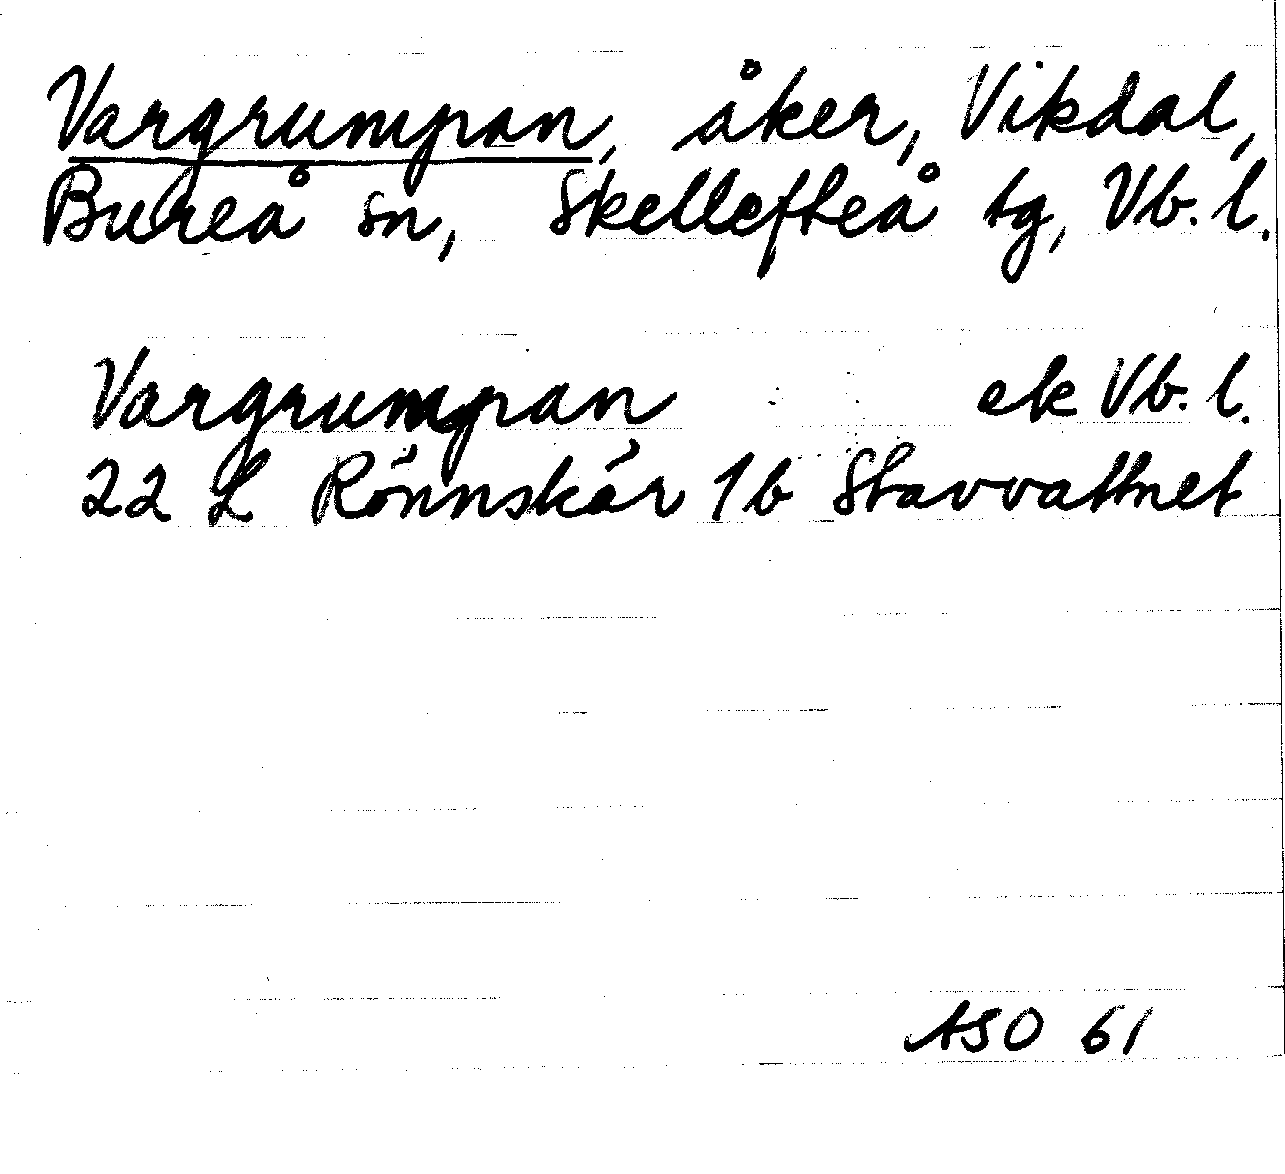 Vargrumpan, åker, Vikdal,
Bureå sn, Skellefteå tg, Vb. l.
Vargrumpan ek Vb. l.
22 L Rönnskär 1b Stavvattnet
ASO 61